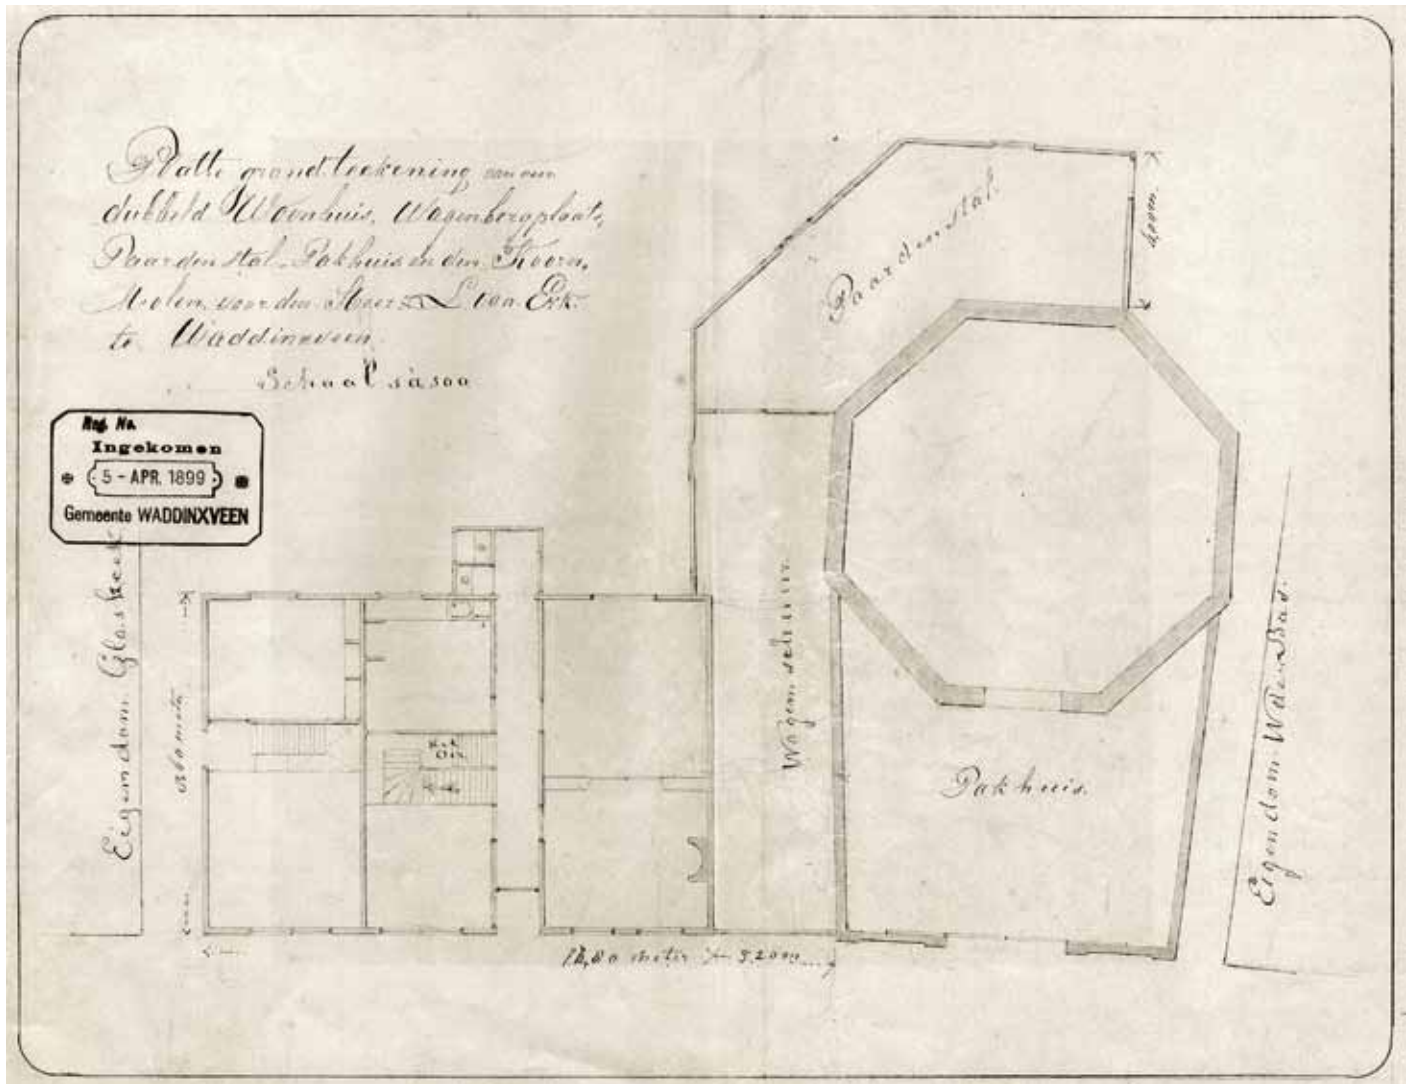 Platte grondteekening van een
dubbeld Woonhuis, Wagenbergplaats,
Paardenstal, Pakhuis en den Koorn,
Molen voor den Heer L van Erk.
te Waddinxveen.
Schaal
Reg. No.
Ingekomen
5 - APR. 1899
Gemeente WADDINXVEEN
Paardenstal.
4,00 m
Wagenschuur.
Pakhuis.
Eigendom
meter
Eigendom W den Bas.
meter 3.20 m